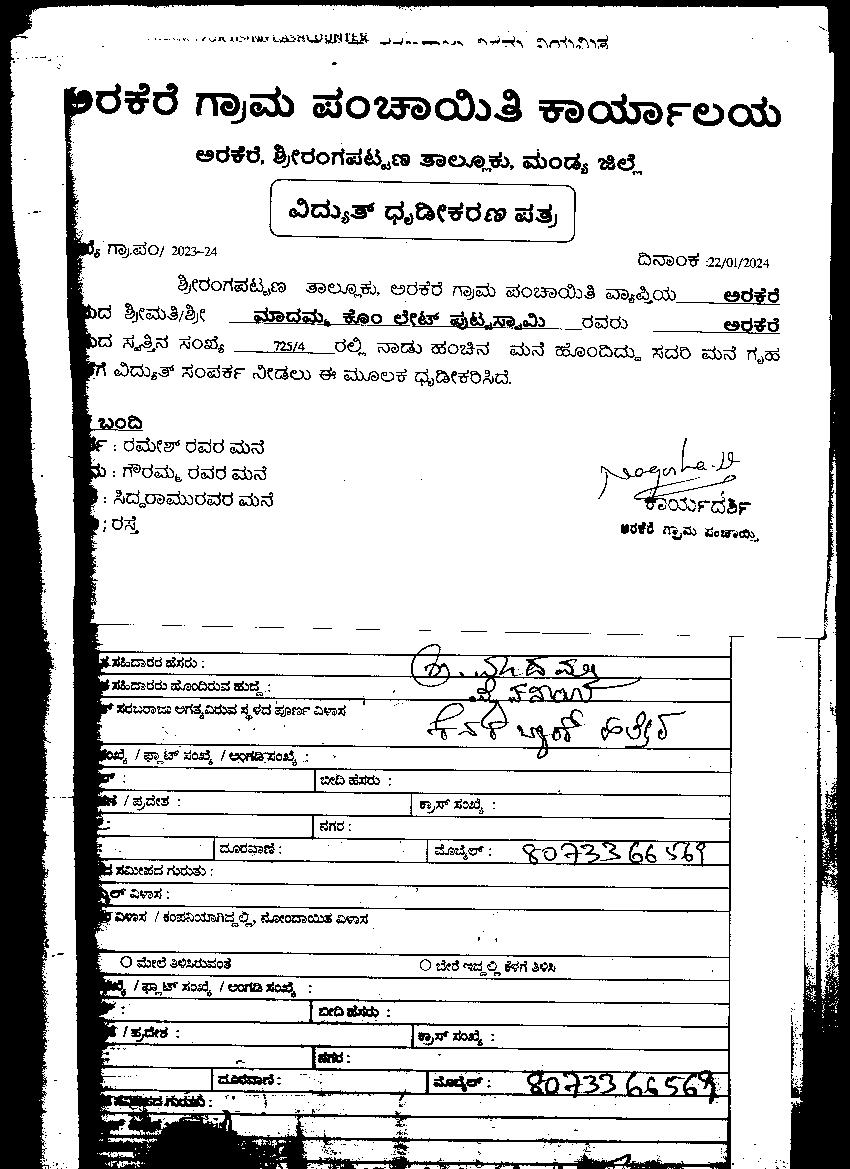 ಅರಕೆರೆ ಗ್ರಾಮ ಪಂಚಾಯಿತಿ ಕಾರ್ಯಾಲಯ
ಅರಕೆರೆ, ಶ್ರೀರಂಗಪಟ್ಟಣ ತಾಲ್ಲೂಕು, ಮಂಡ್ಯ ಜಿಲ್ಲೆ
ವಿದ್ಯುತ್ ಧೃಡೀಕರಣ ಪತ್ರ
ಗ್ರಾ.ಪಂ/ 2023-24
ದಿನಾಂಕ :22/01/2024
ಶ್ರೀರಂಗಪಟ್ಟಣ ತಾಲ್ಲೂಕು, ಅರಕೆರೆ ಗ್ರಾಮ ಪಂಚಾಯಿತಿ ವ್ಯಾಪ್ತಿಯ ಅರಕೆರೆ
ಶ್ರೀಮತಿ/ಶ್ರೀ ಮಾದಮ್ಮ ಕೊಂ ಲೇಟ್ ಪುಟ್ಟಸ್ವಾಮಿ ರವರು ಅರಕೆರೆ
ಸ್ವತ್ತಿನ ಸಂಖ್ಯೆ 725/4 ರಲ್ಲಿ ನಾಡು ಹಂಚಿನ ಮನೆ ಹೊಂದಿದ್ದು ಸದರಿ ಮನೆ ಗೃಹ
ವಿದ್ಯುತ್ ಸಂಪರ್ಕ ನೀಡಲು ಈ ಮೂಲಕ ಧೃಡೀಕರಿಸಿದೆ.
ಬಂದಿ
: ರಮೇಶ್ ರವರ ಮನೆ
: ಗೌರಮ್ಮ ರವರ ಮನೆ
: ಸಿದ್ದರಾಮುರವರ ಮನೆ
; ರಸ್ತೆ
ಕಾರ್ಯದರ್ಶಿ
ಅರಕೆರೆ ಗ್ರಾಮ ಪಂಚಾಯ್ತಿ
ಸಹಿದಾರರ ಹೆಸರು :
ಸಹಿದಾರರು ಹೊಂದಿರುವ ಹುದ್ದೆ :
ಸರಬರಾಜು ಅಗತ್ಯವಿರುವ ಸ್ಥಳದ ಪೂರ್ಣ ವಿಳಾಸ
/ ಫ್ಲಾಟ್ ಸಂಖ್ಯೆ / ಅಂಗಡಿ ಸಂಖ್ಯೆ :
: ಬೀದಿ ಹೆಸರು :
/ ಪ್ರದೇಶ : ಕ್ರಾಸ್ ಸಂಖ್ಯೆ :
: ನಗರ :
ದೂರವಾಣಿ : ಮೊಬೈಲ್ : 8073366569
ಸಮೀಪದ ಗುರುತು :
ವಿಳಾಸ :
ವಿಳಾಸ / ಕಂಪನಿಯಾಗಿದ್ದಲ್ಲಿ, ನೋಂದಾಯಿತ ವಿಳಾಸ
ಮೇಲೆ ತಿಳಿಸಿರುವಂತೆ ಬೇರೆ ಇದ್ದಲ್ಲಿ ಕೆಳಗೆ ತಿಳಿಸಿ
/ ಫ್ಲಾಟ್ ಸಂಖ್ಯೆ / ಅಂಗಡಿ ಸಂಖ್ಯೆ :
: ಬೀದಿ ಹೆಸರು :
/ ಪ್ರದೇಶ : ಕ್ರಾಸ್ ಸಂಖ್ಯೆ :
ನಗರ :
ದೂರವಾಣಿ : ಮೊಬೈಲ್ : 8073366569